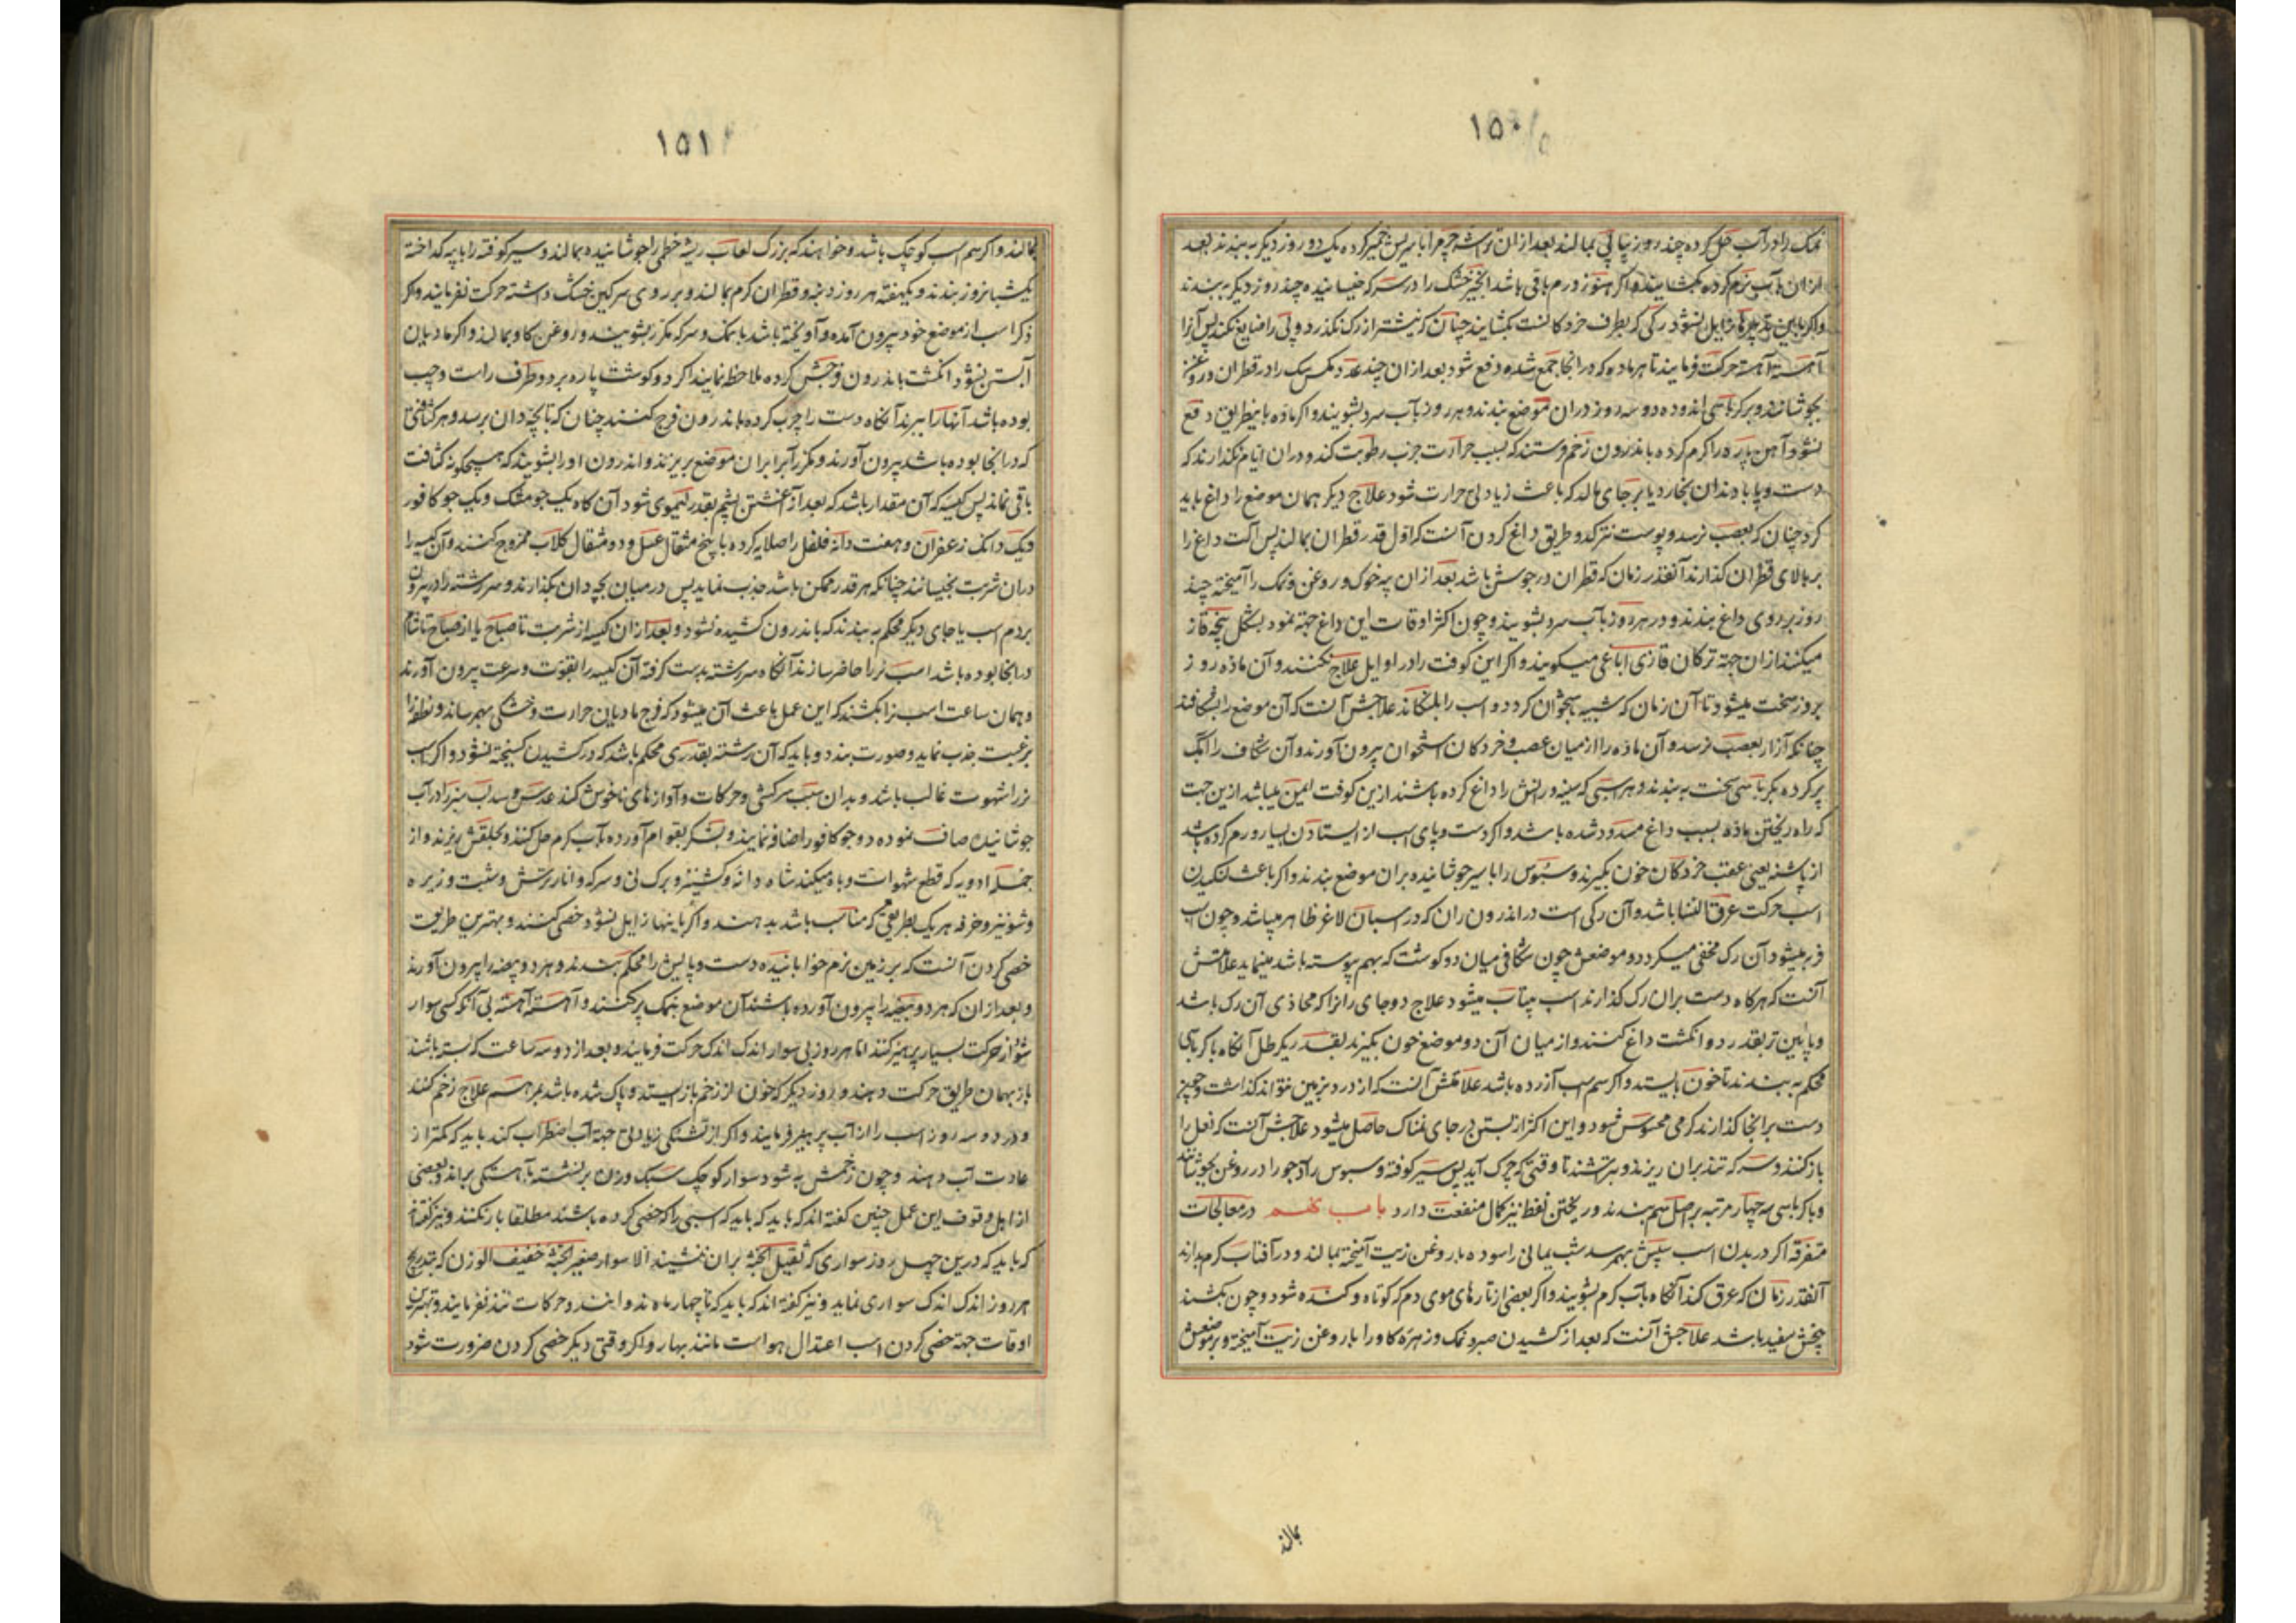 ۱۵۰
نمک را در آب حل کرده چند روز پیاپی بمالند بعد از ان تراشه چرم را با سریس خمیر کرده یک دو روز دیکر به بندند بعد
از ان بآب نرم کرده بکشایند و اکر هنوز ورم باقی باشد انجیر خشک را در سرکه خیسانیده چند روز دیکر به بندند
و اکر باین تدبیرها زایل نشود رکی که بطرف خردکانست بکشایند چنان که نیشتر از رک نکذرد و پی را ضایع نکند پس آنرا
آهسته آهسته حرکت فرمایند تا هر ماده که در انجا جمع شده دفع شود بعد از ان چند عدد مکس سک را در قطران و روغن
بجوشانند و بر کرباسی اندوده دو سه روز دران موضع بندند و هر روز بآب سرد بشویند و اکر ماده باینطریق دفع
نشود آهن پاره را کرم کرده باندرون زخم فرستند که بسبب حرارت جذب رطوبت کند و دران ایام نکذارند که
دست و پا بدندان بخارد یا بر جای مالد که باعث زیادتی حرارت شود علاج دیکر همان موضع را داغ باید
کرد چنان که بعصب نرسد و پوست نترکد و طریق داغ کردن آنست که اول قدر قطران بمالند پس آلت داغ را
بر بالای قطران کذارند آنقدر زمان که قطران در جوشش باشد بعد از ان پیه خوک و روغن و نمک را آمیخته چند
روز بر روی داغ بندند و در هر روز بآب سرد بشویند و چون اکثر اوقات این داغ جهة نمود بشکل پنجه قاز
میکنند از ان جهة ترکان قازی اباغی میکویند و اکر این کوفت را در اوایل علاج نکنند و آن ماده روز
بروز سخت میشود تا آن زمان که شبیه باستخوان کردد و اسب را بلنکاند علاجش آنست که آن موضع را بشکافند
چنانکه آزار بعصب نرسد و آن ماده را از میان عصب و خردکان استخوان بیرون آورند و آن شکاف را آبک
پر کرده بکرباسی سخت به بندند و هر اسبی که سینه و رانش را داغ کرده باشند ازین کوفت ایمن میباشد ازین جهت
که راه ریختن ماده بسبب داغ مسدود شده باشد و اکر دست و پای اسب از ایستادن بسیار ورم کرده باشد
از پاشنه یعنی عقب خردکان خون بکیرند و سبوس را با سیر جوشانیده بران موضع بندند و اکر باعث لنکیدن
اسب حرکت عرق النسا باشد و آن رکی است در اندرون ران که در اسبان لاغر ظاهر میباشد و چون اسب
فربه میشود آن رک مخفی میکردد و موضعش چون شکافی میان دو کوشت که بهم پیوسته باشد مینماید علامتش
آنست که هرکاه دست بران رک کذارند اسب بیتاب میشود علاج دو جای رانرا که محاذی آن رک باشد
و پایین تر بقدر دو انکشت داغ کنند و از میان آن دو موضع خون بکیرند بقدر یکرطل آنکاه با کرباسی
محکم به بندند تا خون بایستد و اکر سم اسب آزرده باشد علامتش آنست که از درد بزمین نتواند کذاشت و چون
دست برانجا کذارند کرمی محسوس شود و این اکثر از بستن در جای نمناک حاصل میشود علاجش آنست که نعل را
باز کنند و سرکه تند بران ریزند و بتراشند تا وقتی که چرک آید پس سیر کوفته و سبوس را و جو را در روغن بجوشانند
و با کرباسی سه چهار مرتبه بر اصل سم بندند و ریختن نفط نیز کمال منفعت دارد باب نهم در معالجات
متفرقه اکر در بدن اسب سپش بهم رسد شب یمانی را سوده با روغن زیت آمیخته بمالند و در آفتاب کرم بدارند
آنقدر زمان که عرق کند آنکاه بآب کرم بشویند و اکر بعضی از تارهای موی دم که کوتاه و کنده شود و چون بکشند
بیخش سفید باشد علاجش آنست که بعد از کشیدن صبر و نمک و زهره کاو را با روغن زیت آمیخته و بر موضعش
بمالند
۱۵۱
بمالند و اکر سم اسب کوچک باشد و خواهند که بزرک لعاب ریشه خطمی را جوشانیده بمالند و سیر کوفته را با پیه کداخته
یکشبانروز بندند و یکهفته هر روز دنبه و قطران کرم بمالند و بر روی سرکین خشک داشته حرکت نفرمایند و اکر
ذکر اسب از موضع خود بیرون آمده و آویخته باشد با نمک و سرکه مکرر بشویند و روغن کاو بمالند و اکر مادیان
آبستن نشود انکشت باندرون فرجش کرده ملاحظه نمایند اکر دو کوشت پاره بر دو طرف راست و چپ
بوده باشد آنها را ببرند آنکاه دست را چرب کرده باندرون فرج کنند چنان که تا بچه دان برسد و هر کثافتی
که در انجا بوده باشد بیرون آورند و مکرر آب بران موضع بریزند و اندرون او را بشویند که هیچکونه کثافت
باقی نماند پس کیسه که آن مقدار باشد که بعد از آغشتن پشم بقدر لیموی شود آن کاه یک جو مشک و یک جو کافور
و یک دانک زعفران و هفت دانه فلفل را صلایه کرده با پنج مثقال عسل و دو مثقال کلاب ممزوج کنند و آن کیسه را
دران شربت بخیسانند چنانکه هر قدر ممکن باشد جذب نماید پس در میان بچه دان بکذارند و سر رشته را در بیرون
بر دم اسب یا جای دیکر محکم به بندند که باندرون کشیده نشود و بعد از ان کیسه از شربت تا صباح یا از صباح تا شام
در انجا بوده باشد اسب نر را حاضر سازند آنکاه سر رشته بدست کرفته آن کیسه را بقوت و سرعت بیرون آورند
و همان ساعت اسب نر را بکشند که این عمل باعث آن میشود که فرج مادیان حرارت و خشکی بهم رساند و نطفه را
برغبت جذب نماید و صورت بندد و باید که آن رشته بقدری محکم باشد که در کشیدن کسیخته نشود و اکر اسب
نر را شهوت غالب باشد و بدان سبب سرکشی و حرکات و آوازهای ناخوش کند عدس و سداب سبز را در آب
جوشانیده صاف نموده دو جو کافور اضافه نمایند و بشکر بقوام آورده بآب کرم حل کنند و بحلقش ریزند و از
جمله ادویه که قطع شهوات و باه میکند شاه دانه و کشنیز و برک نی و سرکه و انار ترش و شبت و زیره
و شونیز و خرفه هر یک بطریقی که مناسب باشد بدهند و اکر باینها زایل نشود خصی کنند و بهترین طریقت
خصی کردن آنست که بر زمین نرم خوابانیده دست و پایش را محکم بندند و هر دو بیضه را بیرون آورند
و بعد از ان که هر دو بیضه را بیرون آورده باشند آن موضع بنمک پر کنند و آهسته آهسته بی آنکه کسی سوار
شود از حرکت بسیار پرهیز کنند اما هر روز بی سوار اندک اندک حرکت فرمایند و بعد از دو سه ساعت که بسته باشند
باز بهمان طریق حرکت دهند و روز دیکر که خون از زخم باز ایستد و پاک شده باشد بمرهم علاج زخم کنند
و در دو سه روز اسب را از آب پرهیز فرمایند و اکر از تشنکی زیادتی جهة آب اضطراب کند باید که کمتر از
عادت آب دهند و چون زخمش به شود سوار کوچک سبک وزن بر نشسته بآهستکی براند و بعضی
از اهل وقوف این عمل چنین کفته اند که باید که باید که اسبی را که خصی کرده باشند مطلقا بار نکنند و نیز کفته اند
که باید که درین چهل روز سواری که ثقیل الجثه بران ننشیند الا سوار صغیر الجثه خفیف الوزن که بتدریج
هر روز اندک اندک سواری نماید و نیز کفته اند که باید که تا چهار ماه ندوانند و حرکات تند نفرمایند و بهترین
اوقات جهة خصی کردن اسب اعتدال هواست مانند بهار و اکر وقتی دیکر خصی کردن ضرورت شود